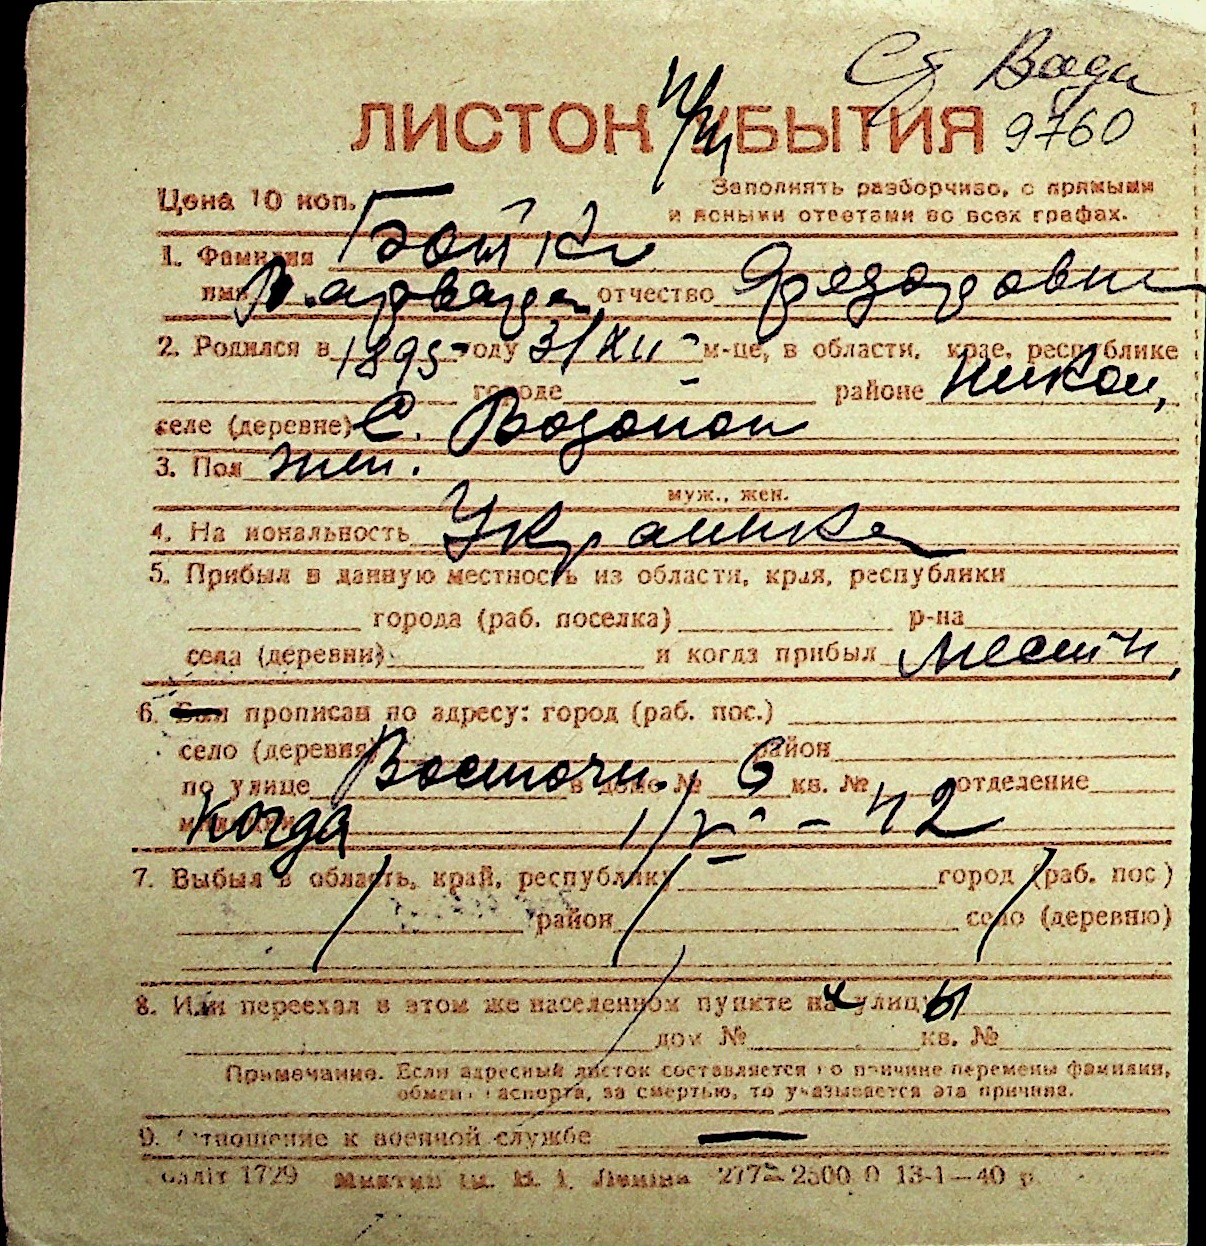 Ст Вода
ЛИСТОК УБЫТИЯ 9760
Цена 10 коп. Заполнять разборчиво, с прямыми
и ясными ответами во всех графах.
1. Фамилия Бойко
имя Варвара отчество Федоровн
2. Родился в 1895 году 31/XII м-це, в области, крае, республике
городе - районе Никол,
селе (деревне) с. Водопой
3. Пол жен.
муж., жен.
4. Национальность Украинка
5. Прибыл в данную местность из области, края, республики
города (раб. поселка) р-на
села (деревни) и когда прибыл местн,
6. Был прописан по адресу: город (раб. пос.)
село (деревня) район
по улице Восточн. в доме № 6 кв. № отделение
когда 1/V - 42
7. Выбыл в область, край, республику город (раб. пос)
район село (деревню)
8. Или переехал в этом же населенном пункте на улицы
дом № кв. №
Примечание. Если адресный листок составляется по причине перемены фамилии,
обмена паспорта, за смертью, то указывается эта причина.
9. Отношение к военной службе —
1729 Леніна 277 2500 0 13-1—40 р.